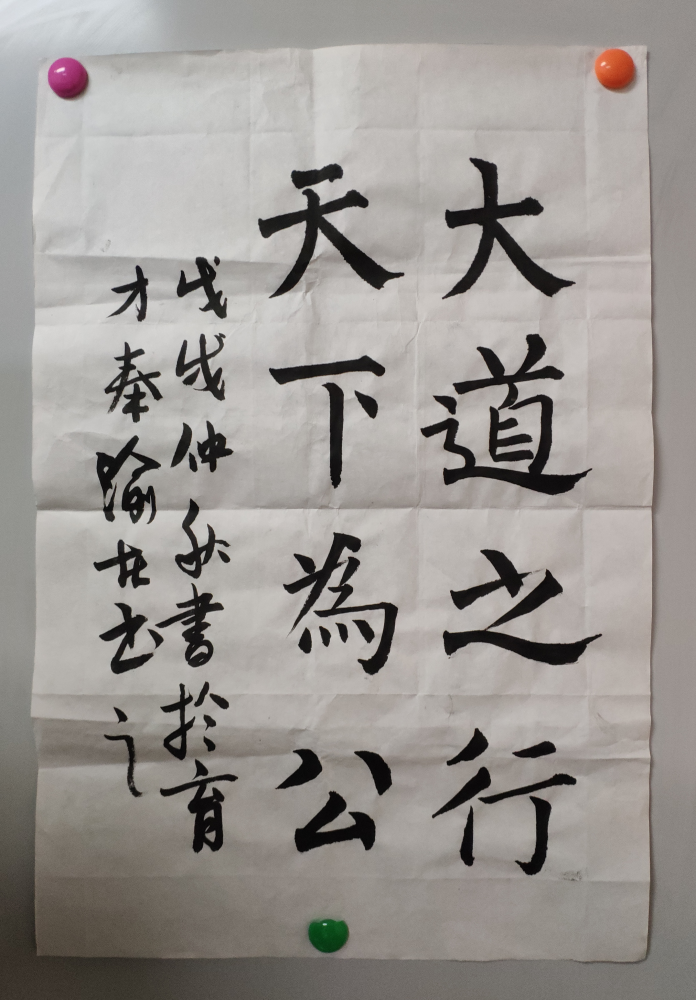 大道之行
天下為公
戊戌仲秋書於育
才奉瑜